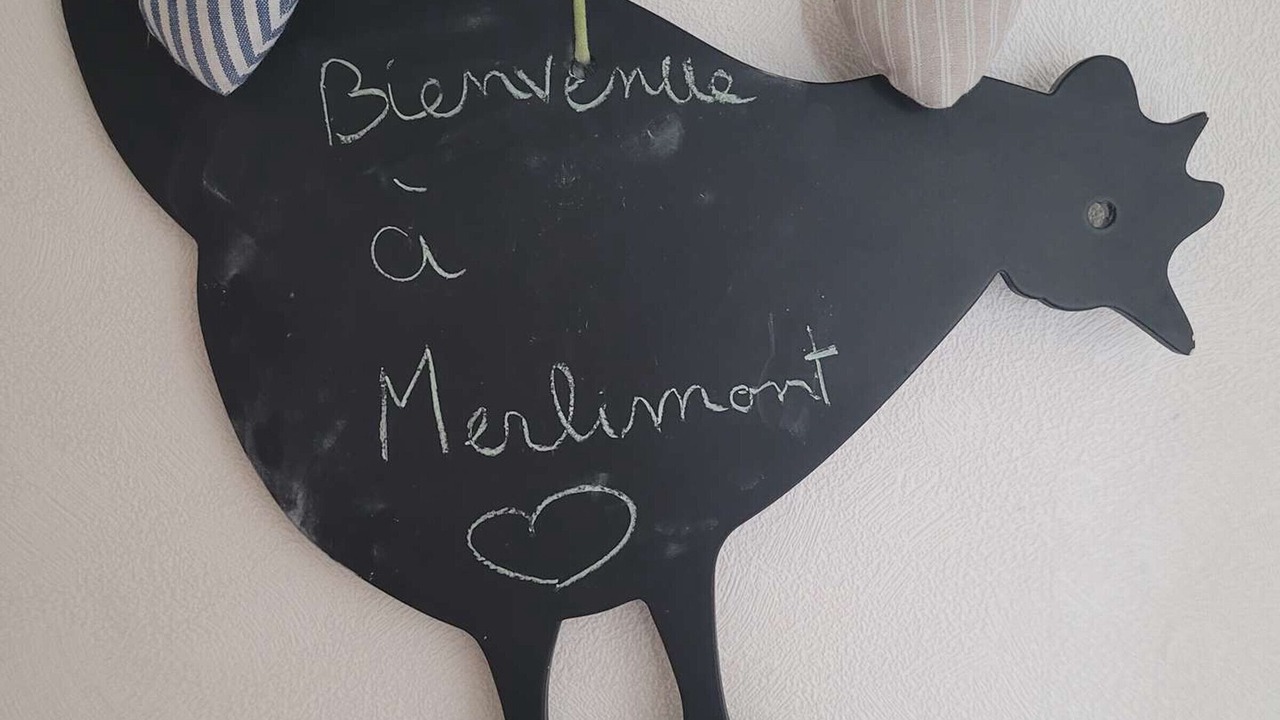 Bienvenue
à
Merlimont